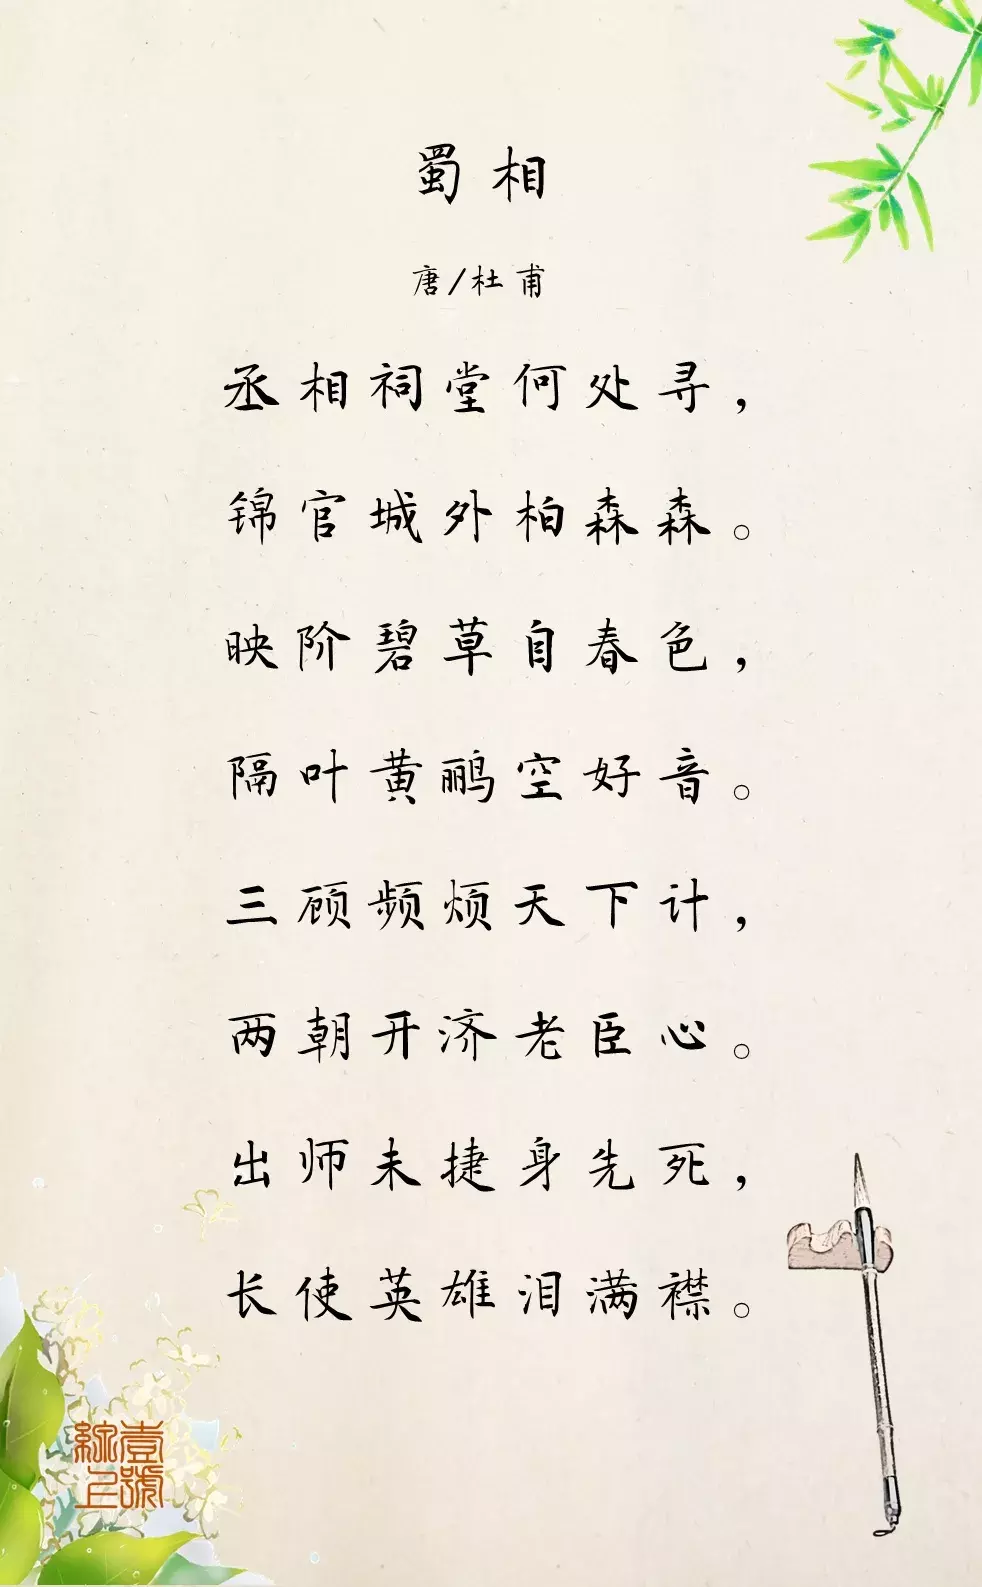 蜀相
唐/杜甫
丞相祠堂何处寻，
锦官城外柏森森。
映阶碧草自春色，
隔叶黄鹂空好音。
三顾频烦天下计，
两朝开济老臣心。
出师未捷身先死，
长使英雄泪满襟。